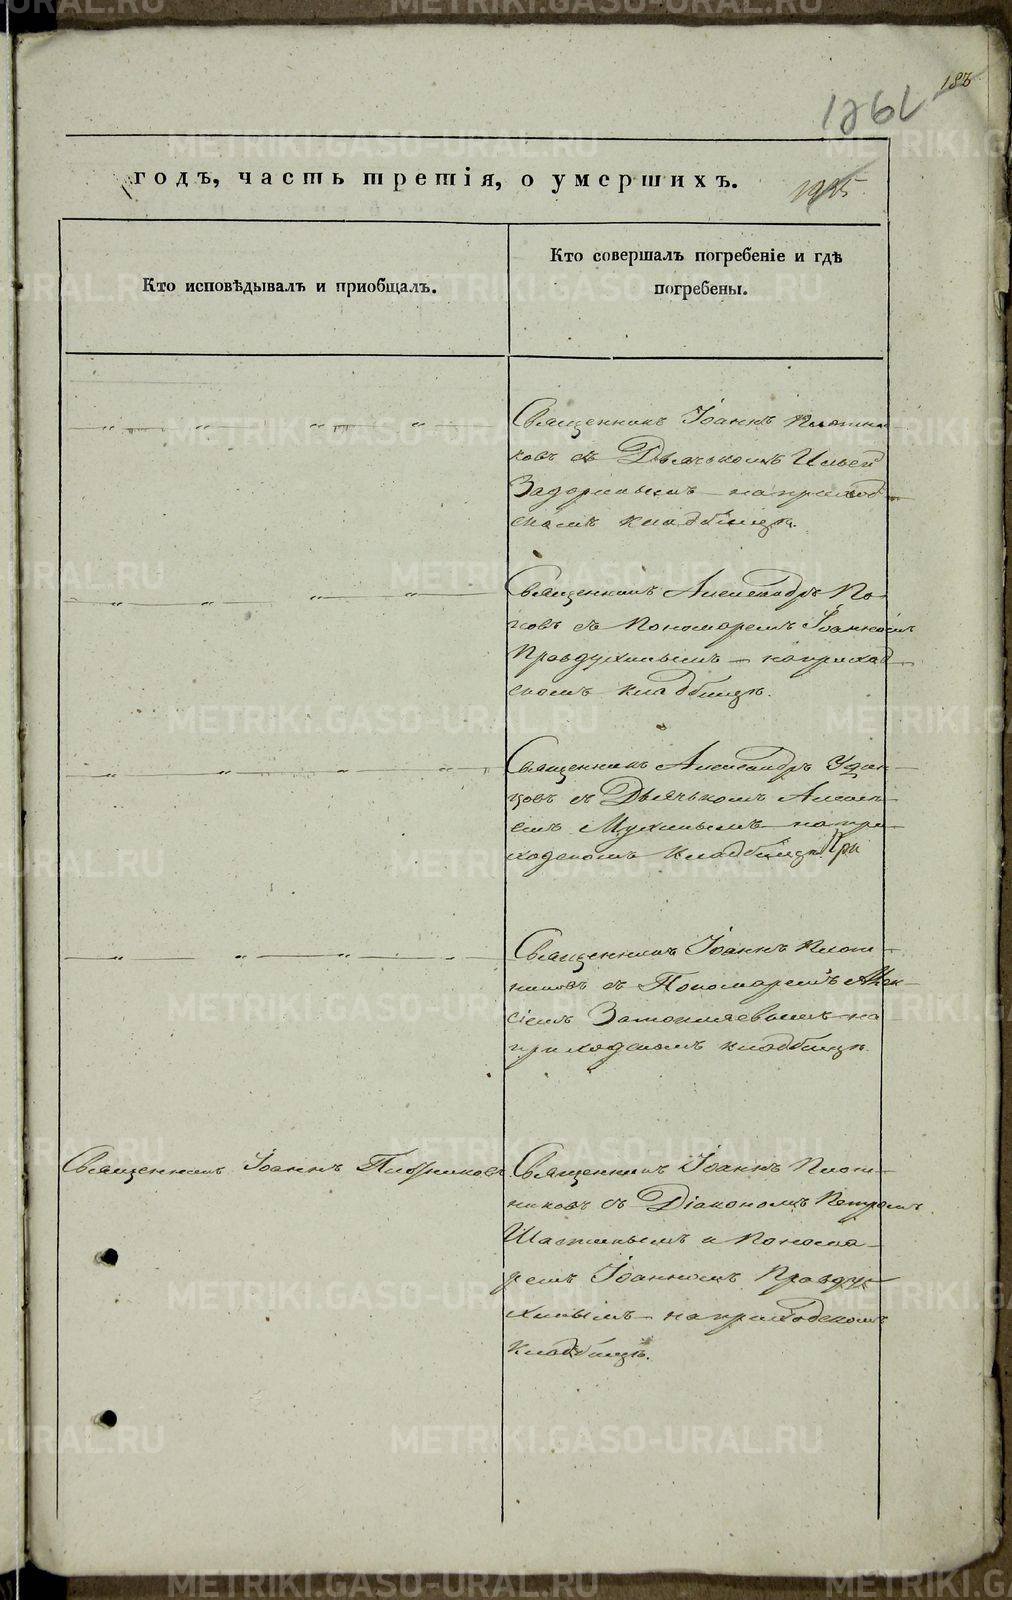 183
1262
годъ, часть третія, о умершихъ.
1915
Кто исповѣдывалъ и приобщалъ.
Кто совершалъ погребеніе и гдѣ
погребены.
Священникъ Іоаннъ Плотни-
ковъ съ Дьячькомъ Ильей
Задоринымъ на приход-
скомъ кладбищѣ.
Священникъ Александръ По-
повъ съ Пономаремъ Іоанномъ
Правдухинымъ на приход-
скомъ кладбищѣ.
Священникъ Александръ Удин-
цовъ съ Дьячькомъ Алексѣ-
емъ Мухинымъ на при-
ходскомъ кладбищѣ При
Священникъ Іоаннъ Плот-
никовъ съ Пономаремъ Алек-
сіемъ на
приходскомъ кладбищѣ.
Священникъ Іоаннъ Плотниковъ
Священникъ Іоаннъ Плот-
никовъ съ Діакономъ Петромъ
и Понома-
ремъ Іоанномъ Правду-
хинымъ на приходскомъ
кладбищѣ.
METRIKI.GASO-URAL.RU